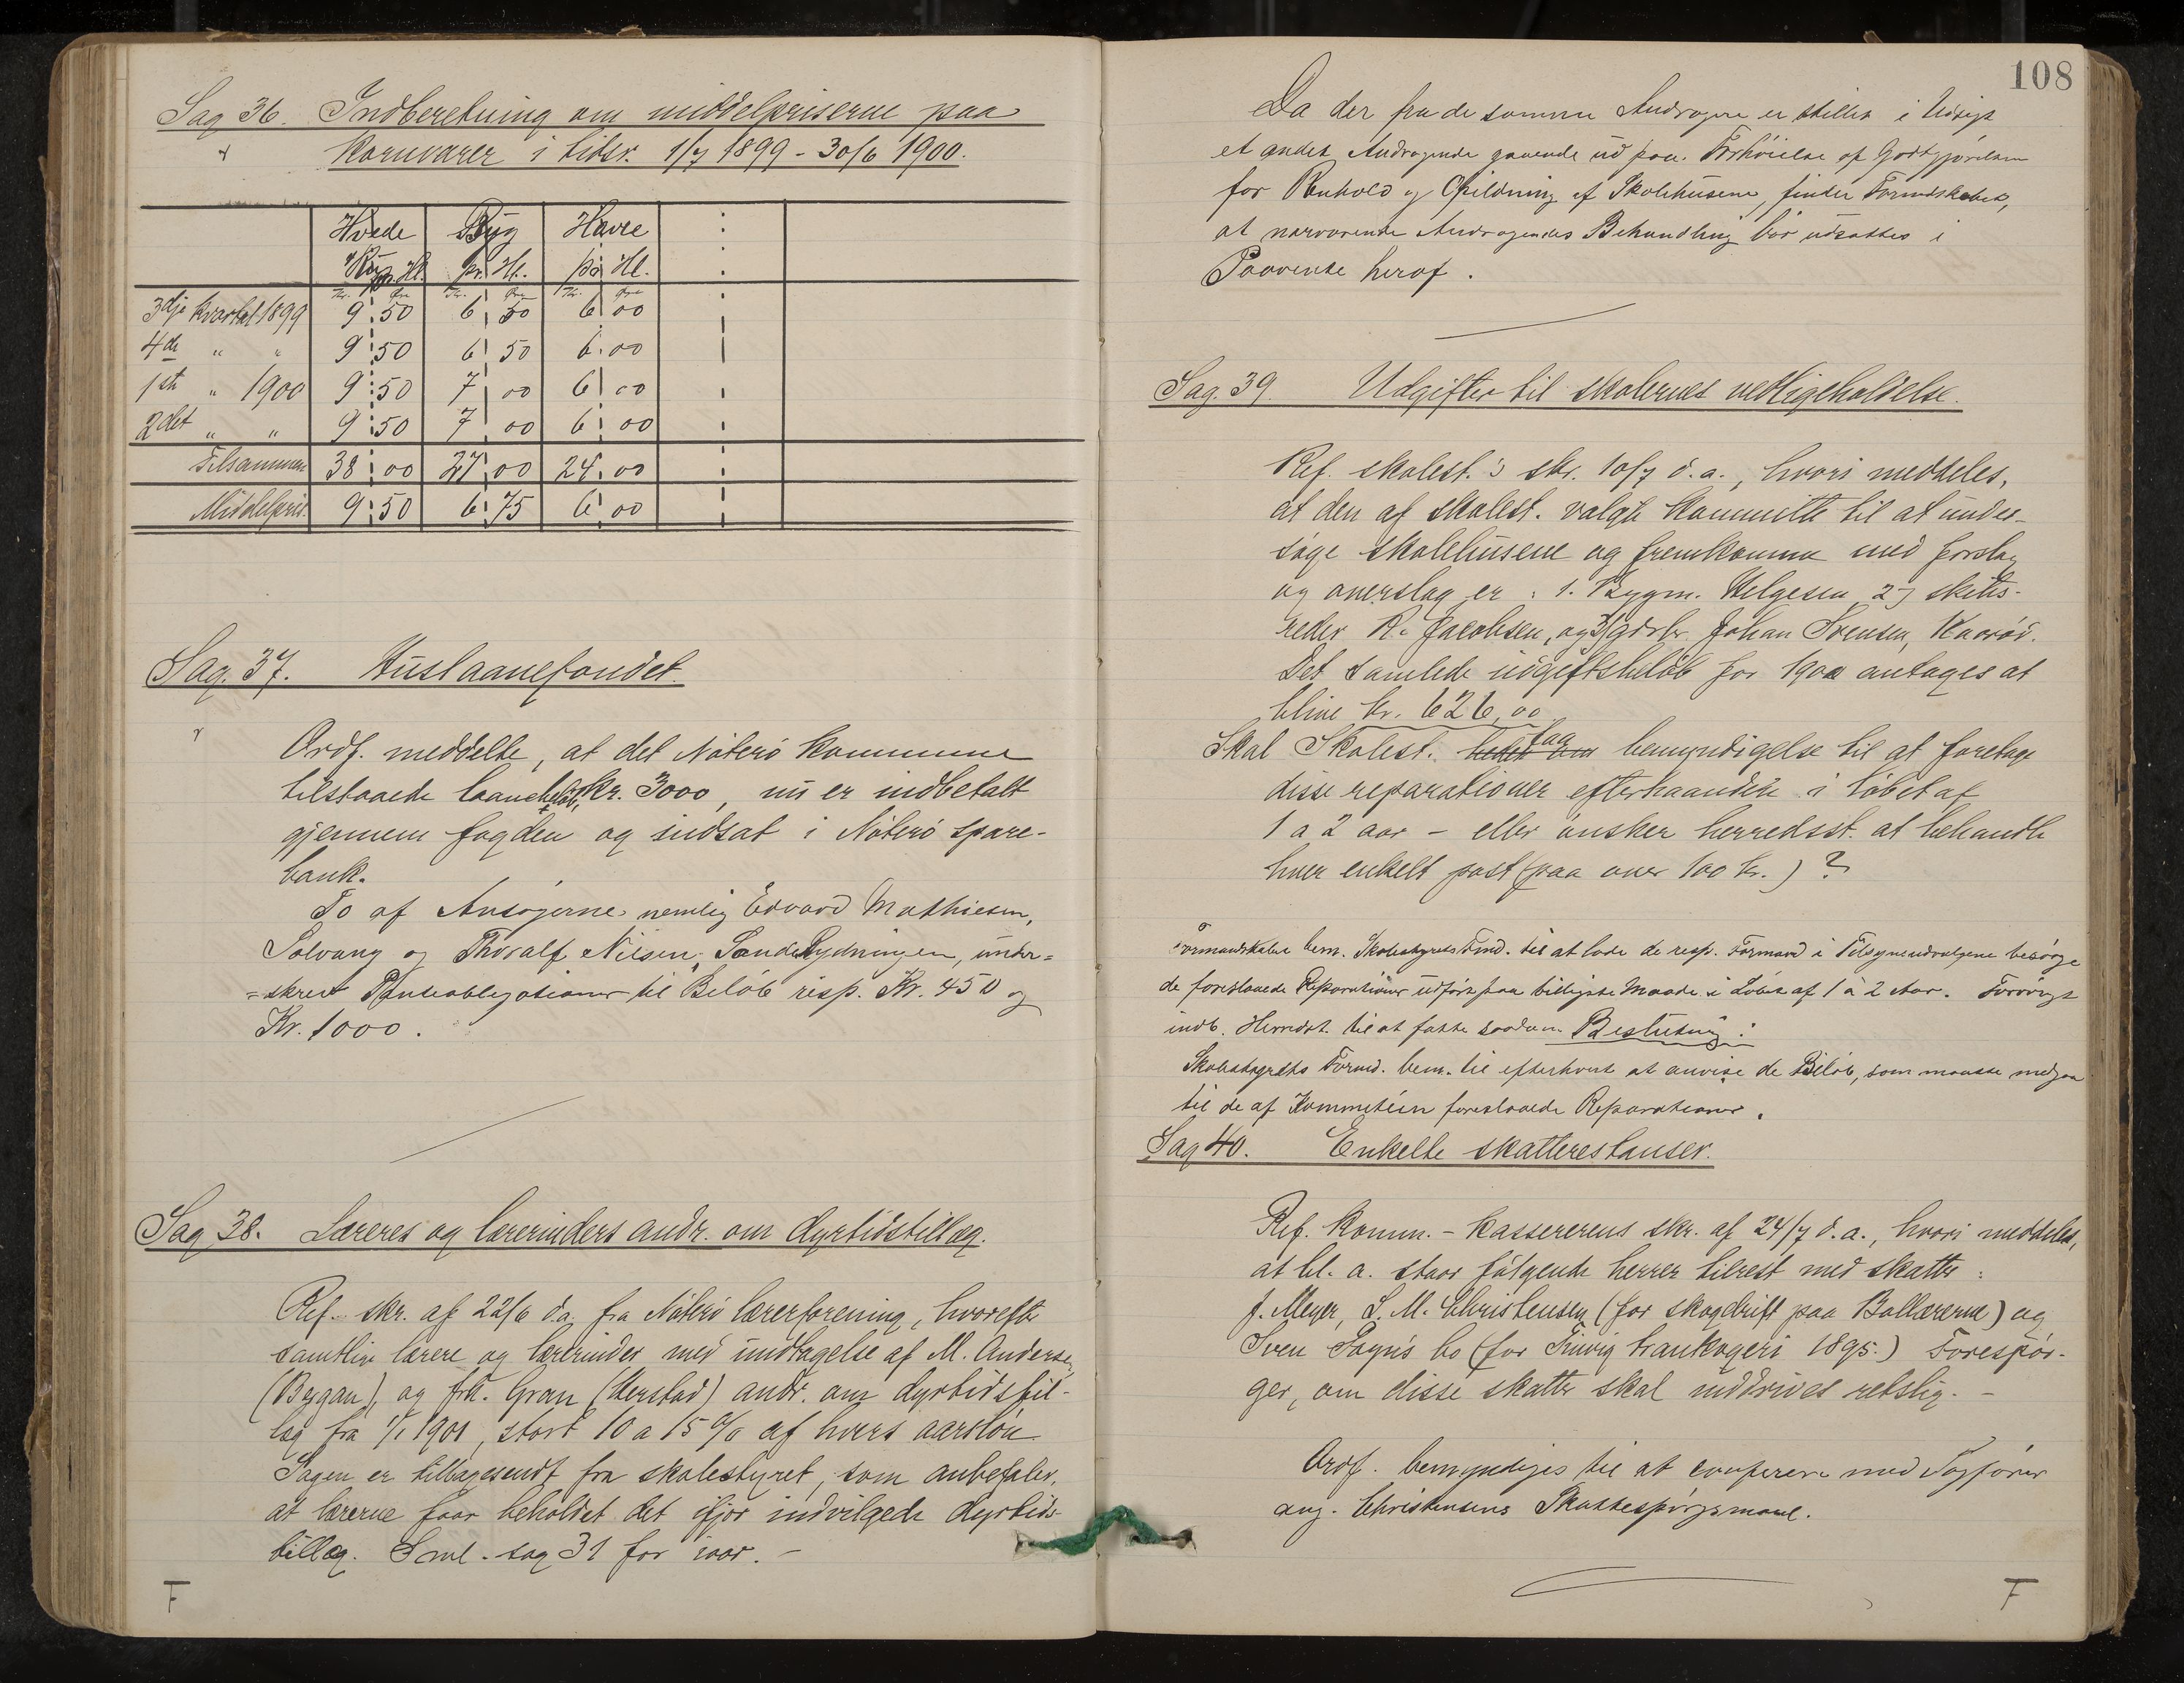 Sag 36. Indberetning om middelpriserne paa
Kornvarer i tidsr. 1/7 1899 - 30/6 1900.
Hvede Byg Havre
pr. Hl. pr. Hl. pr Hl.
Kr. Øre Kr. Øre Kr. Øre
3dje Kvartal 1899 9 50 6 50 6 00
4de " " 9 50 6 50 6 00
1ste " 1900 9 50 7 00 6 00
2det " " 9 50 7 00 6 00
Tilsammen 38 00 27 00 24 00
Middelpris. 9 50 6 75 6 00
Sag. 37. Huslaanefondet.
Ordf. meddelte, at det Nøterø Kommune
tilstaaede laanebeløb, kr. 3000, nu er indbetalt
gjennem fogden og indsat i Nøterø spare-
bank.
To af Ansøgerne nemlig Edvard Mathiesen,
Solvang og Thoralf Nilsen, Sande, under=
=skrev Panteobligationer til Beløb resp. Kr. 450 og
Kr. 1000.
Sag 38. Læreres og lærerinders andr. om dyrtidstillæg.
Ref. skr. af 22/6 d.a. fra Nøterø lærerforening, hvorefter
samtlige lærere og lærerinder med undtagelse af M. Andersen
(Bygan), og frk. Gran (Herstad) andr. om dyrtidstil-
læg fra 1/1 1901, stort 10 a 15 % af hvers aarsløn.
Sagen er tilbagesendt fra skolestyret, som anbefaler,
at lærerne faar beholdet det ifjor indvilgede dyrtids-
tillæg. Sml. sag 31 for iaar. -
F
108
Da der fra de samme Andragere er stillet i Udsigt
et andet Andragende gaaende ud paa Forhøielse af Godtgjørelsen
for Renhold og Opildning af Skolehusene, finder Formandskabet,
at nærværende Andragendes Behandling bør udsættes i
Paavente heraf.
Sag. 39. Udgifter til skolernes vedligeholdelse.
Ref. skolest.'s skr. 10/7 d.a., hvori meddeles,
at den af skolest. valgte kommitte til at under-
søge skolehusene og fremkomme med forslag
og overslag er: 1. Bygm. Helgesen 2) skibs-
reder R. Jacobsen, og 3) gdbr. Johan Svensen, Kaarød.
Det samlede udgiftsbeløb for 1900 antages at
blive kr. 626,00
Skal Skolest. faa bemyndigelse til at foretage
disse reparationer efterhaanden i løbet af
1 a 2 aar - eller ønsker herredsst. at behandle
hver enkelt post (paa over 100 kr.)?
Formandskabet bem. Skolestyrets Fmd. til at lade de resp. Formænd i Tilsynsudvalgene besørge
de foreslaaede Reparationer udført paa billigste Maade i Løbet af 1 à 2 Aar. Forøvrigt
indb. Herredst. til at fatte saadan Beslutning:
Skolestyrets Formd. bem. til efterhvert at anvise de Beløb, som maatte medgaa
til de af Kommiteen foreslaaede Reparationer.
Sag 40. Enkelte skatterestanser.
Ref. Komm.-kassererens skr. af 24/7 d.a., hvori meddeles,
at bl. a. staar følgende herrer tilrest med skatter:
J. Meyer, S. M. Christensen (for skogdrift paa Bollærerne) og
Sven Foyns bo (for trankogeri 1895.) Forespør-
ger, om disse skatter skal inddrives retslig. -
Ordf. bemyndiges til at conferere med Sagfører
ang. Christensens Skattespørgsmaal.
F